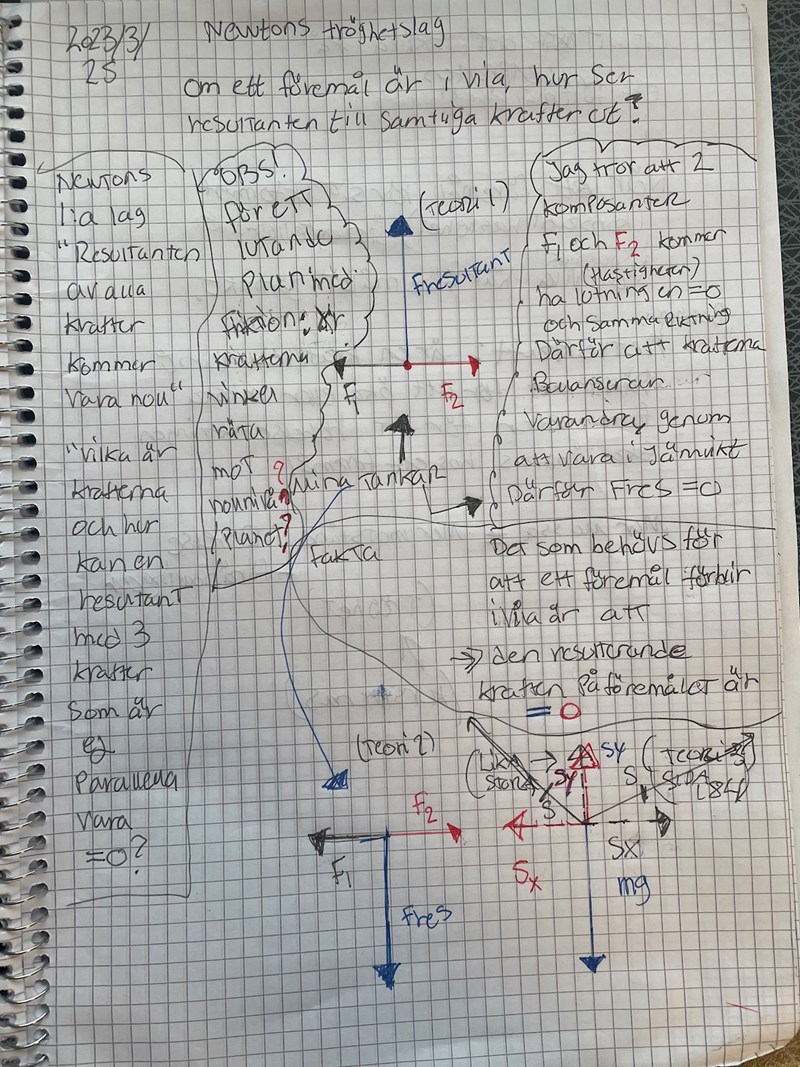 2023/3/
25
Newtons tröghetslag
om ett föremål är i vila, hur ser
resultanten till samtliga krafter ut?
Newtons
1:a lag
"Resultanten
av alla
krafter
kommer
vara noll"
"vilka är
krafterna
och hur
kan en
resutant
med 3
krafter
som är
ej
Parallella
vara
=0?
OBS!
för ett
lutande
plan med
friktion: är
krafterna
vinkel
räta
mot ?
nollnivån
/planet?
(Teori 1)
Fresultant
F1
F2
Mina Tankar
Jag tror att 2
komposanter
F1 och F2 kommer
(Hastigheten)
ha lötningen=0
och samma riktning
Därför att krafterna
Balanserar
varandra, genom
att vara i Jämvikt
Därför Fres =0
fakta
Det som behövs för
att ett föremål förblir
i vila är att
→ den resulterande
kraften på föremålet är
= 0
(Teori 2)
F2
F1
Fres
(Lika →
stora)
Sy
Sy
(Teori 3)
S
S
Sx
Sx
mg